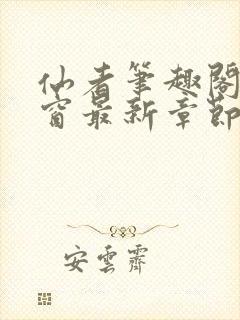 仙者筆趣閣
窗最新章節
安雲霽